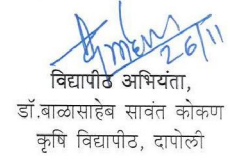 26/11
विद्यापीठ अभियंता,
डॉ.बाळासाहेब सावंत कोकण
कृषि विद्यापीठ, दापोली